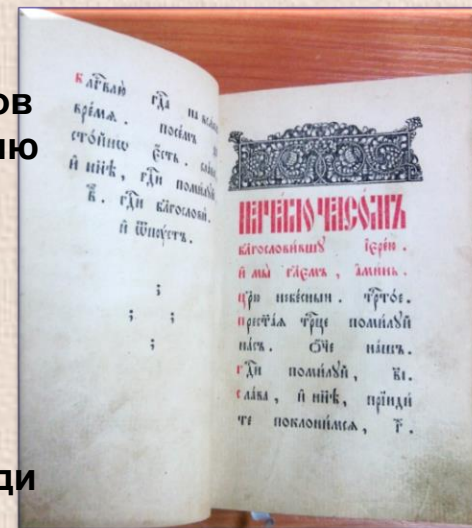 ов
ию
ди
Блгⷭ҇влю̀ гдⷭ҇а на
вре́мѧ. посе́мъ
сто́йнѡ є҆́сть.
и҆ нн҃ѣ, гдⷭ҇и поми́лꙋй
в҃. гдⷭ҇и благословѝ.
и҆ ѿпꙋ́стъ.
НАЧА́ЛО ЧАСО́МЪ
благослови́вшꙋ і҆ере́ю.
и҆ мы̀ гл҃емъ, а҆ми́нь.
Цр҃ю̀ небе́сныи. трⷭ҇то́е.
прест҃а́ѧ трⷪ҇це поми́лꙋй
на́съ. Ѻ҆́че на́шъ.
гдⷭ҇и поми́лꙋй, в҃і.
сла́ва, и҆ нн҃ѣ, прїиди́
те поклони́мсѧ, г҃.